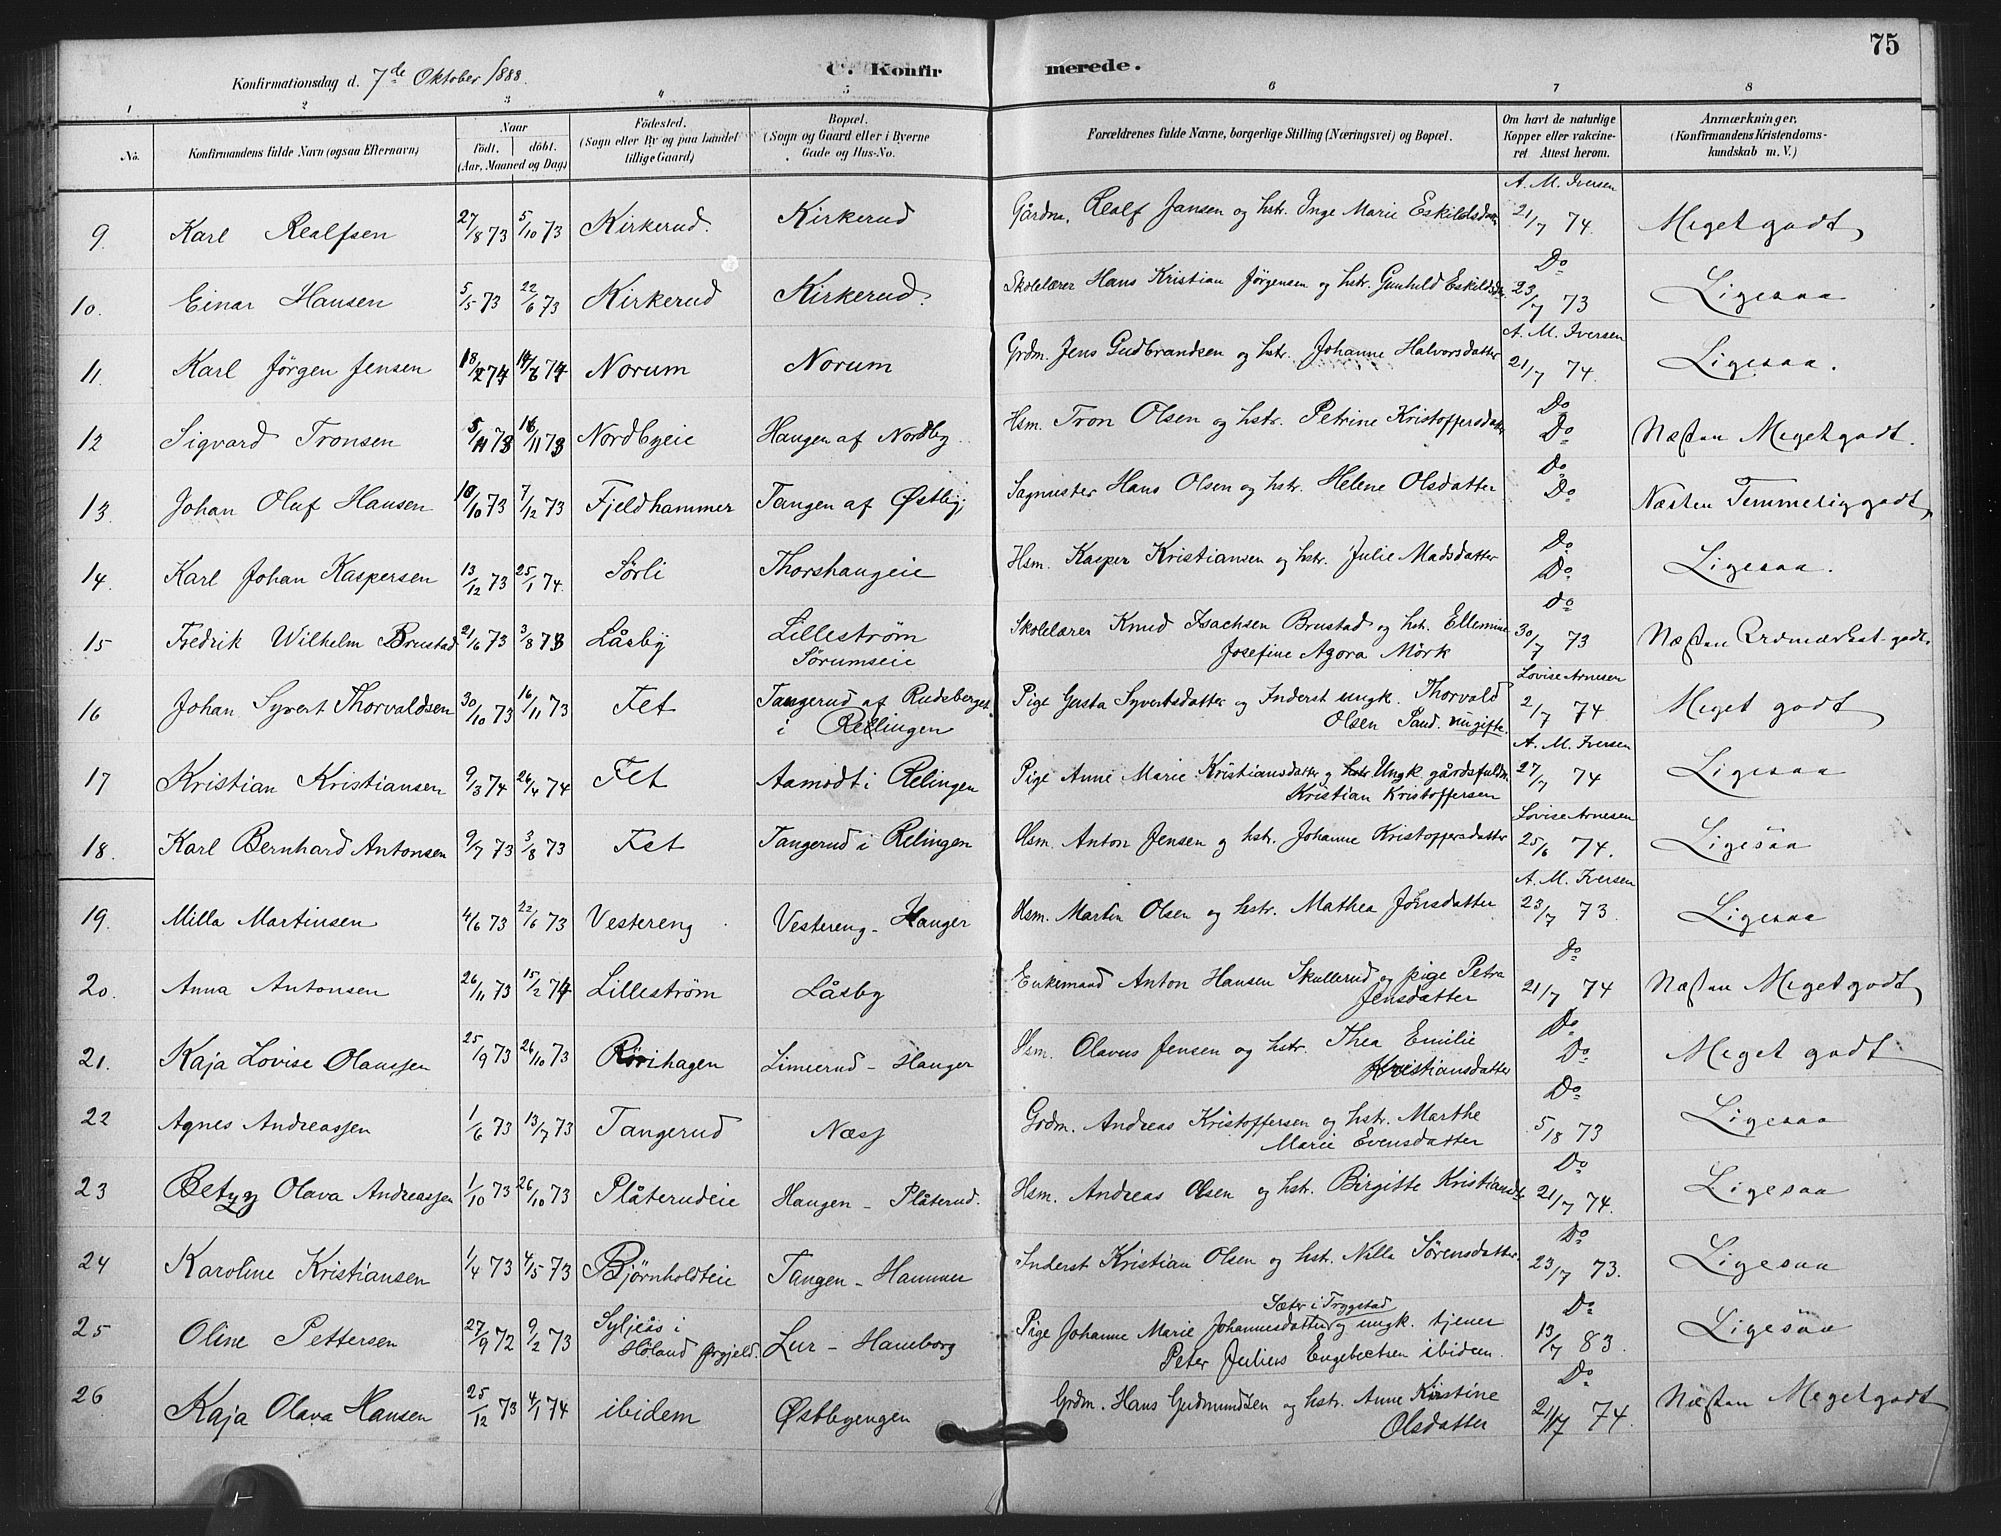 75
Konfirmationsdag d. 7de Oktober 1888.
C. Konfirmerede.
1 2 3 4 5 6 7 8
No.
Konfirmandens fulde Navn (ogsaa Efternavn)
Naar
födt. döbt.
(Aar, Maaned og Dag)
Födested.
(Sogn eller By og paa Landet
tillige Gaard)
Bopæl.
(Sogn og Gaard eller i Byerne
Gade og Hus-No.
Forældrenes fulde Navne, borgerlige Stilling (Næringsvei) og Bopæl.
Om havt de naturlige
Kopper eller vakcine-
ret. Attest herom.
Anmærkninger,
(Konfirmandens Kristendoms-
kundskab m. V.)
A. M. Iversen
9 Karl Realfsen 27/8 73 5/10 73 Kirkerud. Kirkerud Gårdm. Realf Jansen og hstr. Inge Marie Eskildsdatr 21/7 74. Meget godt
Do
10. Einar Hansen 5/5 73 22/6 73 Kirkerud Kirkerud. Skolelærer Hans Kristian Jørgensen og hstr. Gunhild Eskildsdr. 23/7 73 Ligesaa
A. M. Iversen
11. Karl Jørgen Jensen 18/2 74 14/6 74 Norum Norum Grdm. Jens Gudbrandsen og hstr. Johanne Halvorsdatter 21/7 74. Ligesaa.
Do
12 Sigvard Tronsen 5/11 73 16/11 73 Nordbyeie Haugen af Nordby. Hsm. Tron Olsen og hstr. Petrine Kristoffersdatter Do Næsten Meget godt.
Do
13. Johan Oluf Hansen 18/10 73 7/12 73 Fjeldhammer Tangen af Østby, Sagmester Hans Olsen og hstr. Helene Olsdatter Do Næsten Temmelig godt
Do
14. Karl Johan Kaspersen 13/12 73 25/1 74. Sørli Thorshaugeie Hsm. Kasper Kristiansen og hstr. Julie Madsdatter Do Ligesaa.
Do
15 Fredrik Wilhelm Brustad 21/6 73 3/8 73 Låsby Lilleström Skolelærer Knud Isachsen Brustad og hst. Ellemine 30/7 73 Næsten Udmærket godt.
Sørumseie Josefine Agora Mörk
Lovise Arnesen
16 Johan Syvert Thorvaldsen 30/10 73 16/11 73 Fet Tangerud af Rudsberget Pige Gusta Syvertsdatter og Inderst ungk. Thorvald 2/7 74. Meget godt
i Relingen Olsen Sand. ugifte.
A. M. Iversen
17 Kristian Kristiansen 9/3 74 26/4 74 Fet Aamodt i Relingen Pige Anne Marie Kristiansdatter og Ungk. gårdsfuldm. 27/7 74 Ligesaa
Kristian Kristoffersen
Lovise Arnesen
18. Karl Bernhard Antonsen 9/7 73 3/8 73 Fet Tangerud i Relingen Hsm. Anton Jensen og hstr. Johanne Kristoffersdatter 25/6 74. Ligesaa
A. M. Iversen
19. Milla Martinsen 4/6 73 22/6 73 Vestereng Vestereng - Hanger Hsm. Martin Olsen og hstr. Mathea Jönsdatter 23/7 73 Ligesaa
Do
20. Anna Antonsen 26/11 73 15/2 74 Lilleström Låsby Enkemand Anton Hansen Skullerud og pige Petra 21/7 74 Næsten Meget godt
Jensdatter
Do
21. Kaja Lovise Olaussen 25/9 73 26/10 73 Rörihagen Limerud - Hanger Hsm. Olavus Jensen og hstr. Thea Emilie Do Meget godt
Kristiansdatter
Do
22 Agnes Andreassen 1/6 73 13/7 73 Tangerud Næss Grdm. Andreas Kristoffersen og hstr. Marthe 5/18 73 Ligesaa
Marie Evensdatter
Do
23 Betzy Olava Andreassen 1/10 73 26/10 73 Plåterudeie Haugen - Plåterud. Hsm. Andreas Olsen og hstr. Birgitte Kristiansdtr 21/7 74. Ligesaa
Do
24 Karoline Kristiansen 1/4 73 4/5 73 Bjørnholdteie Tangen - Hammer Inderst Kristian Olsen og hstr. Nilla Sörensdatter. 23/7 73. Ligesaa
Sæter i Trygstad Do
25 Oline Pettersen 27/9 72 9/2 73 Syljeås i Lur - Haneborg Pige Johanne Marie Johannesdatter og ungk. tjener 13/7 83. Ligesaa
Höland Prgjeld. Peter Julius Engebretsen ibidem.
Do
26 Kaja Olava Hansen 25/12 73 4/1 74 ibidem Østbyengen Grdm. Hans Gudmundsen og hstr. Anne Kirstine 21/7 74. Næsten Meget godt
Olsdatter